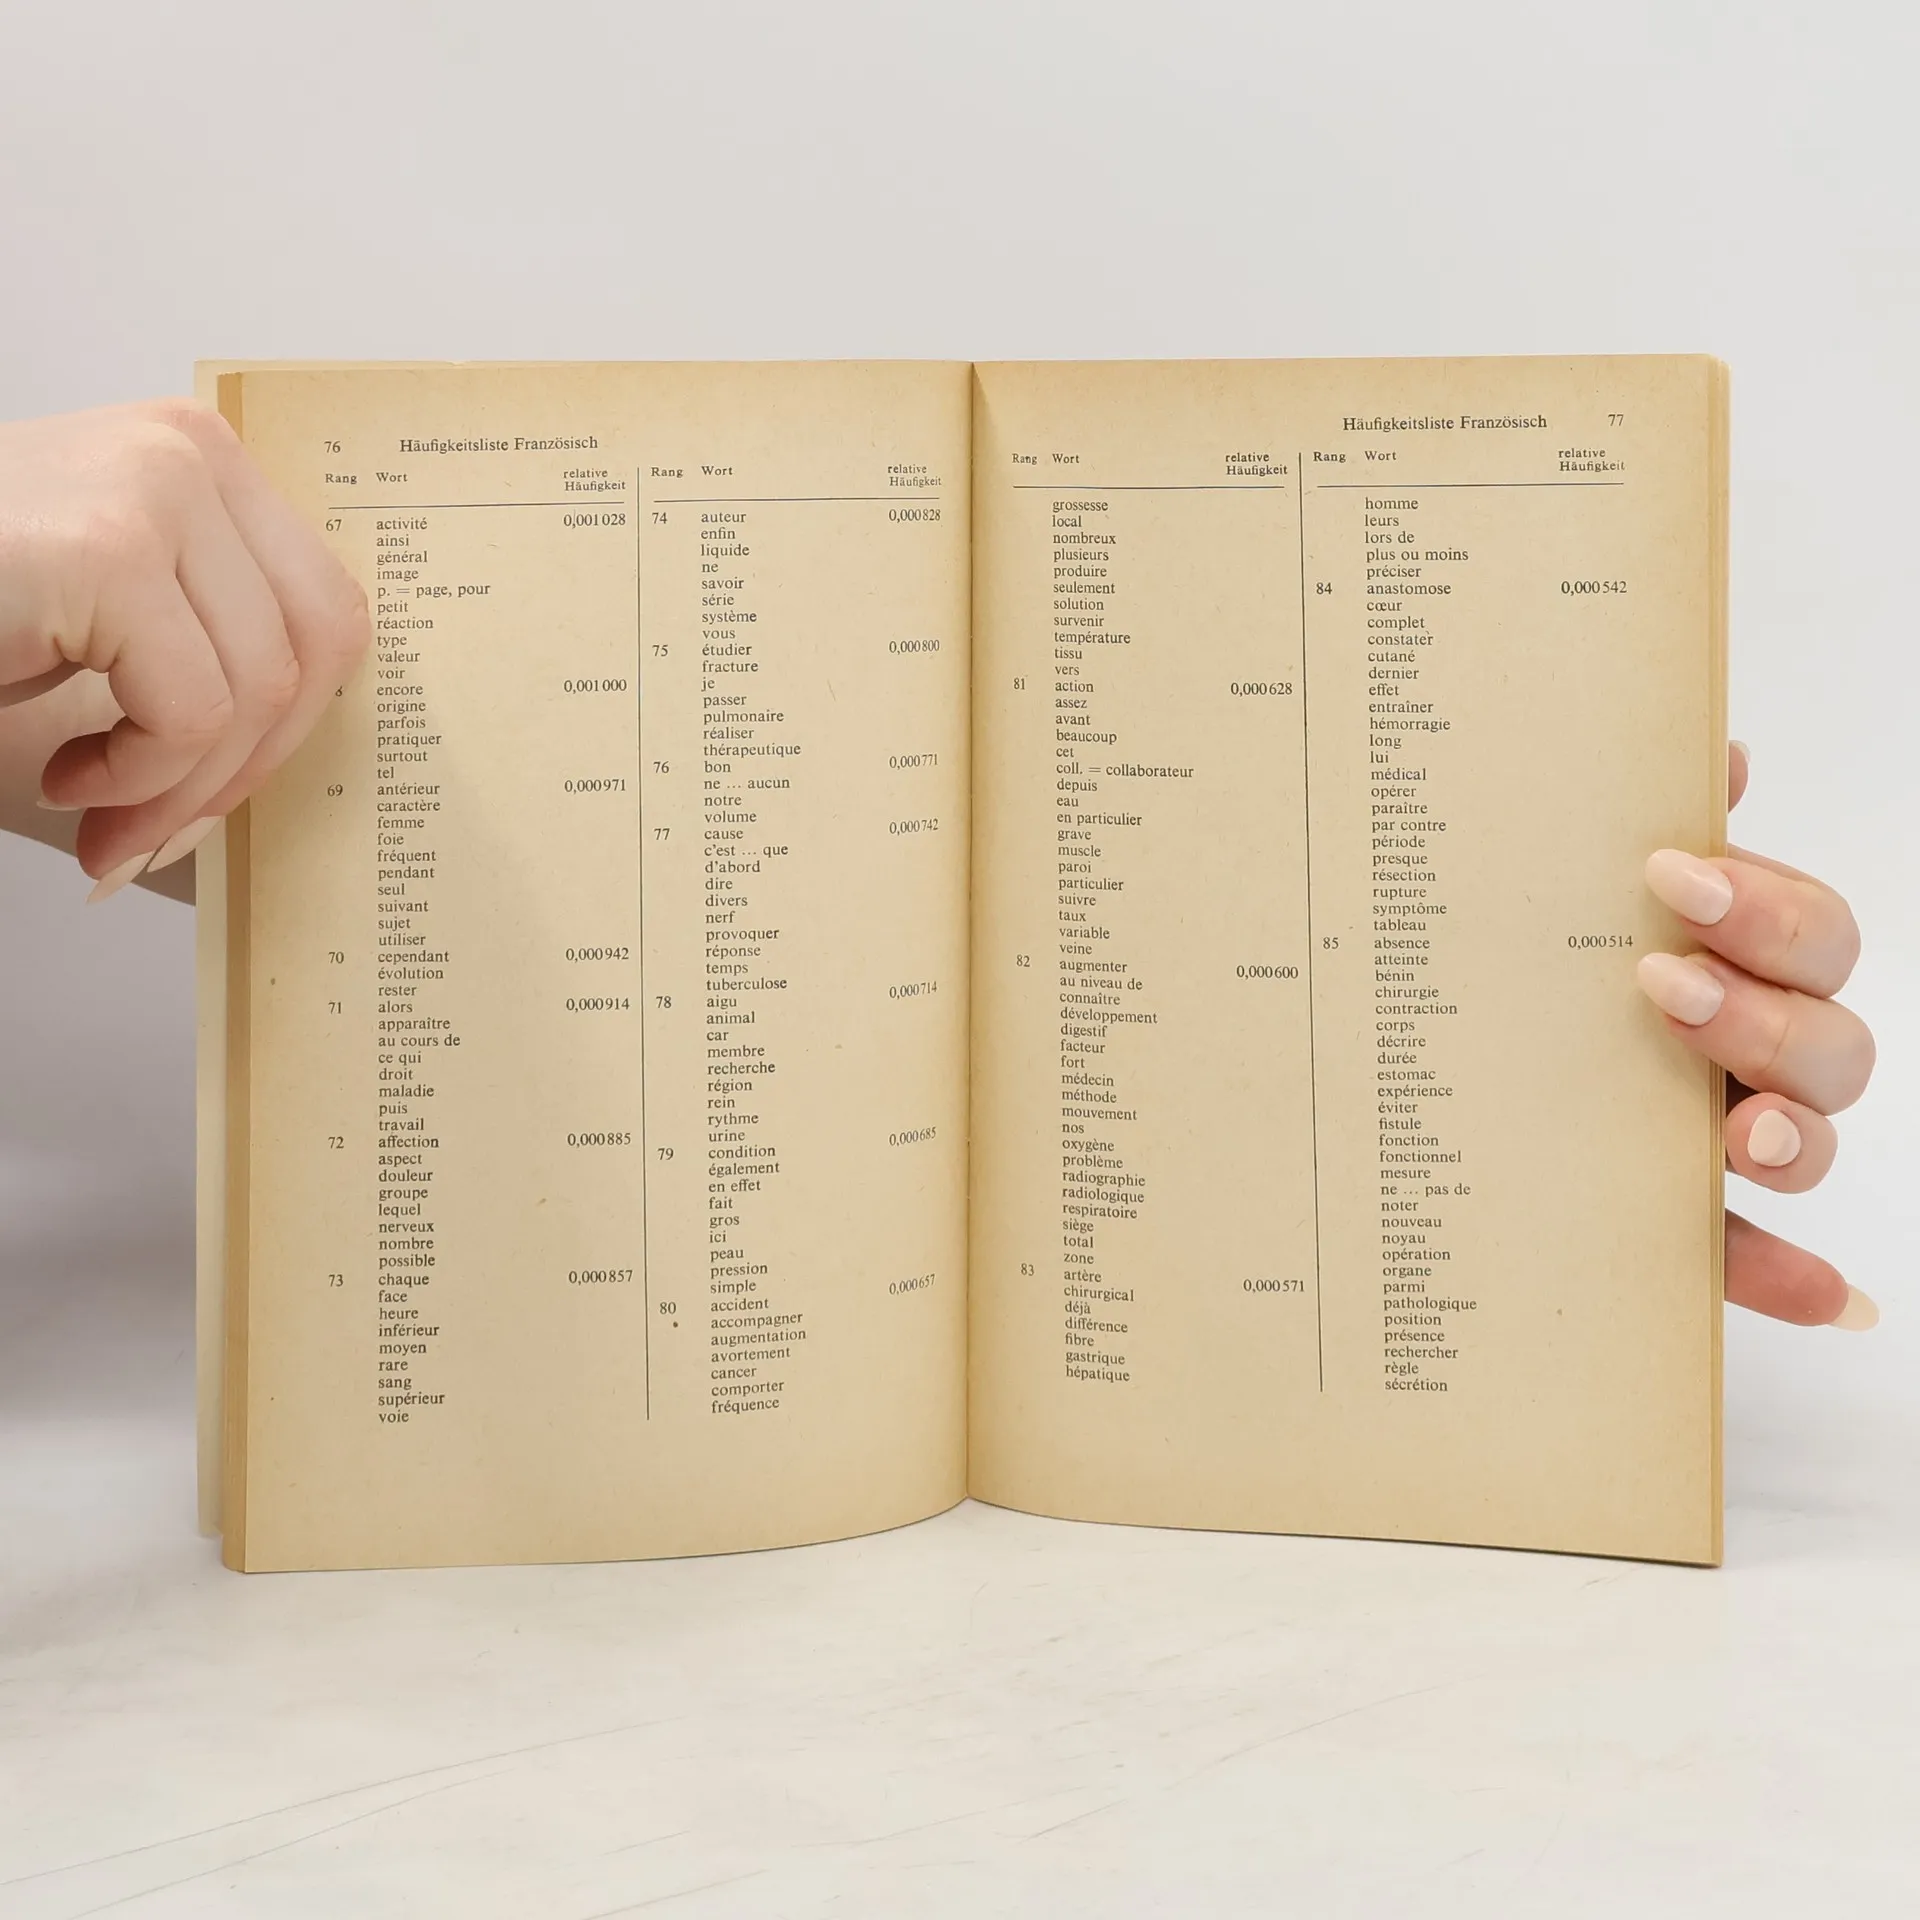 76 Häufigkeitsliste Französisch
Rang Wort relative Häufigkeit
67 activité 0,001 028
ainsi
général
image
p. = page, pour
petit
réaction
type
valeur
voir
8 encore 0,001 000
origine
parfois
pratiquer
surtout
tel
69 antérieur 0,000 971
caractère
femme
foie
fréquent
pendant
seul
suivant
sujet
utiliser
70 cependant 0,000 942
évolution
rester
71 alors 0,000 914
apparaître
au cours de
ce qui
droit
maladie
puis
travail
72 affection 0,000 885
aspect
douleur
groupe
lequel
nerveux
nombre
possible
73 chaque 0,000 857
face
heure
inférieur
moyen
rare
sang
supérieur
voie
Rang Wort relative Häufigkeit
74 auteur 0,000 828
enfin
liquide
ne
savoir
série
système
vous
75 étudier 0,000 800
fracture
je
passer
pulmonaire
réaliser
thérapeutique
76 bon 0,000 771
ne ... aucun
notre
volume
77 cause 0,000 742
c'est ... que
d'abord
dire
divers
nerf
provoquer
réponse
temps
tuberculose
78 aigu 0,000 714
animal
car
membre
recherche
région
rein
rythme
urine
79 condition 0,000 685
également
en effet
fait
gros
ici
peau
pression
simple
80 accident 0,000 657
accompagner
augmentation
avortement
cancer
comporter
fréquence
Häufigkeitsliste Französisch 77
Rang Wort relative Häufigkeit
grossesse
local
nombreux
plusieurs
produire
seulement
solution
survenir
température
tissu
vers
81 action 0,000 628
assez
avant
beaucoup
cet
coll. = collaborateur
depuis
eau
en particulier
grave
muscle
paroi
particulier
suivre
taux
variable
veine
82 augmenter 0,000 600
au niveau de
connaître
développement
digestif
facteur
fort
médecin
méthode
mouvement
nos
oxygène
problème
radiographie
radiologique
respiratoire
siège
total
zone
83 artère 0,000 571
chirurgical
déjà
différence
fibre
gastrique
hépatique
Rang Wort relative Häufigkeit
homme
leurs
lors de
plus ou moins
préciser
84 anastomose 0,000 542
cœur
complet
constater
cutané
dernier
effet
entraîner
hémorragie
long
lui
médical
opérer
paraître
par contre
période
presque
résection
rupture
symptôme
tableau
85 absence 0,000 514
atteinte
bénin
chirurgie
contraction
corps
décrire
durée
estomac
expérience
éviter
fistule
fonction
fonctionnel
mesure
ne ... pas de
noter
nouveau
noyau
opération
organe
parmi
pathologique
position
présence
rechercher
règle
sécrétion